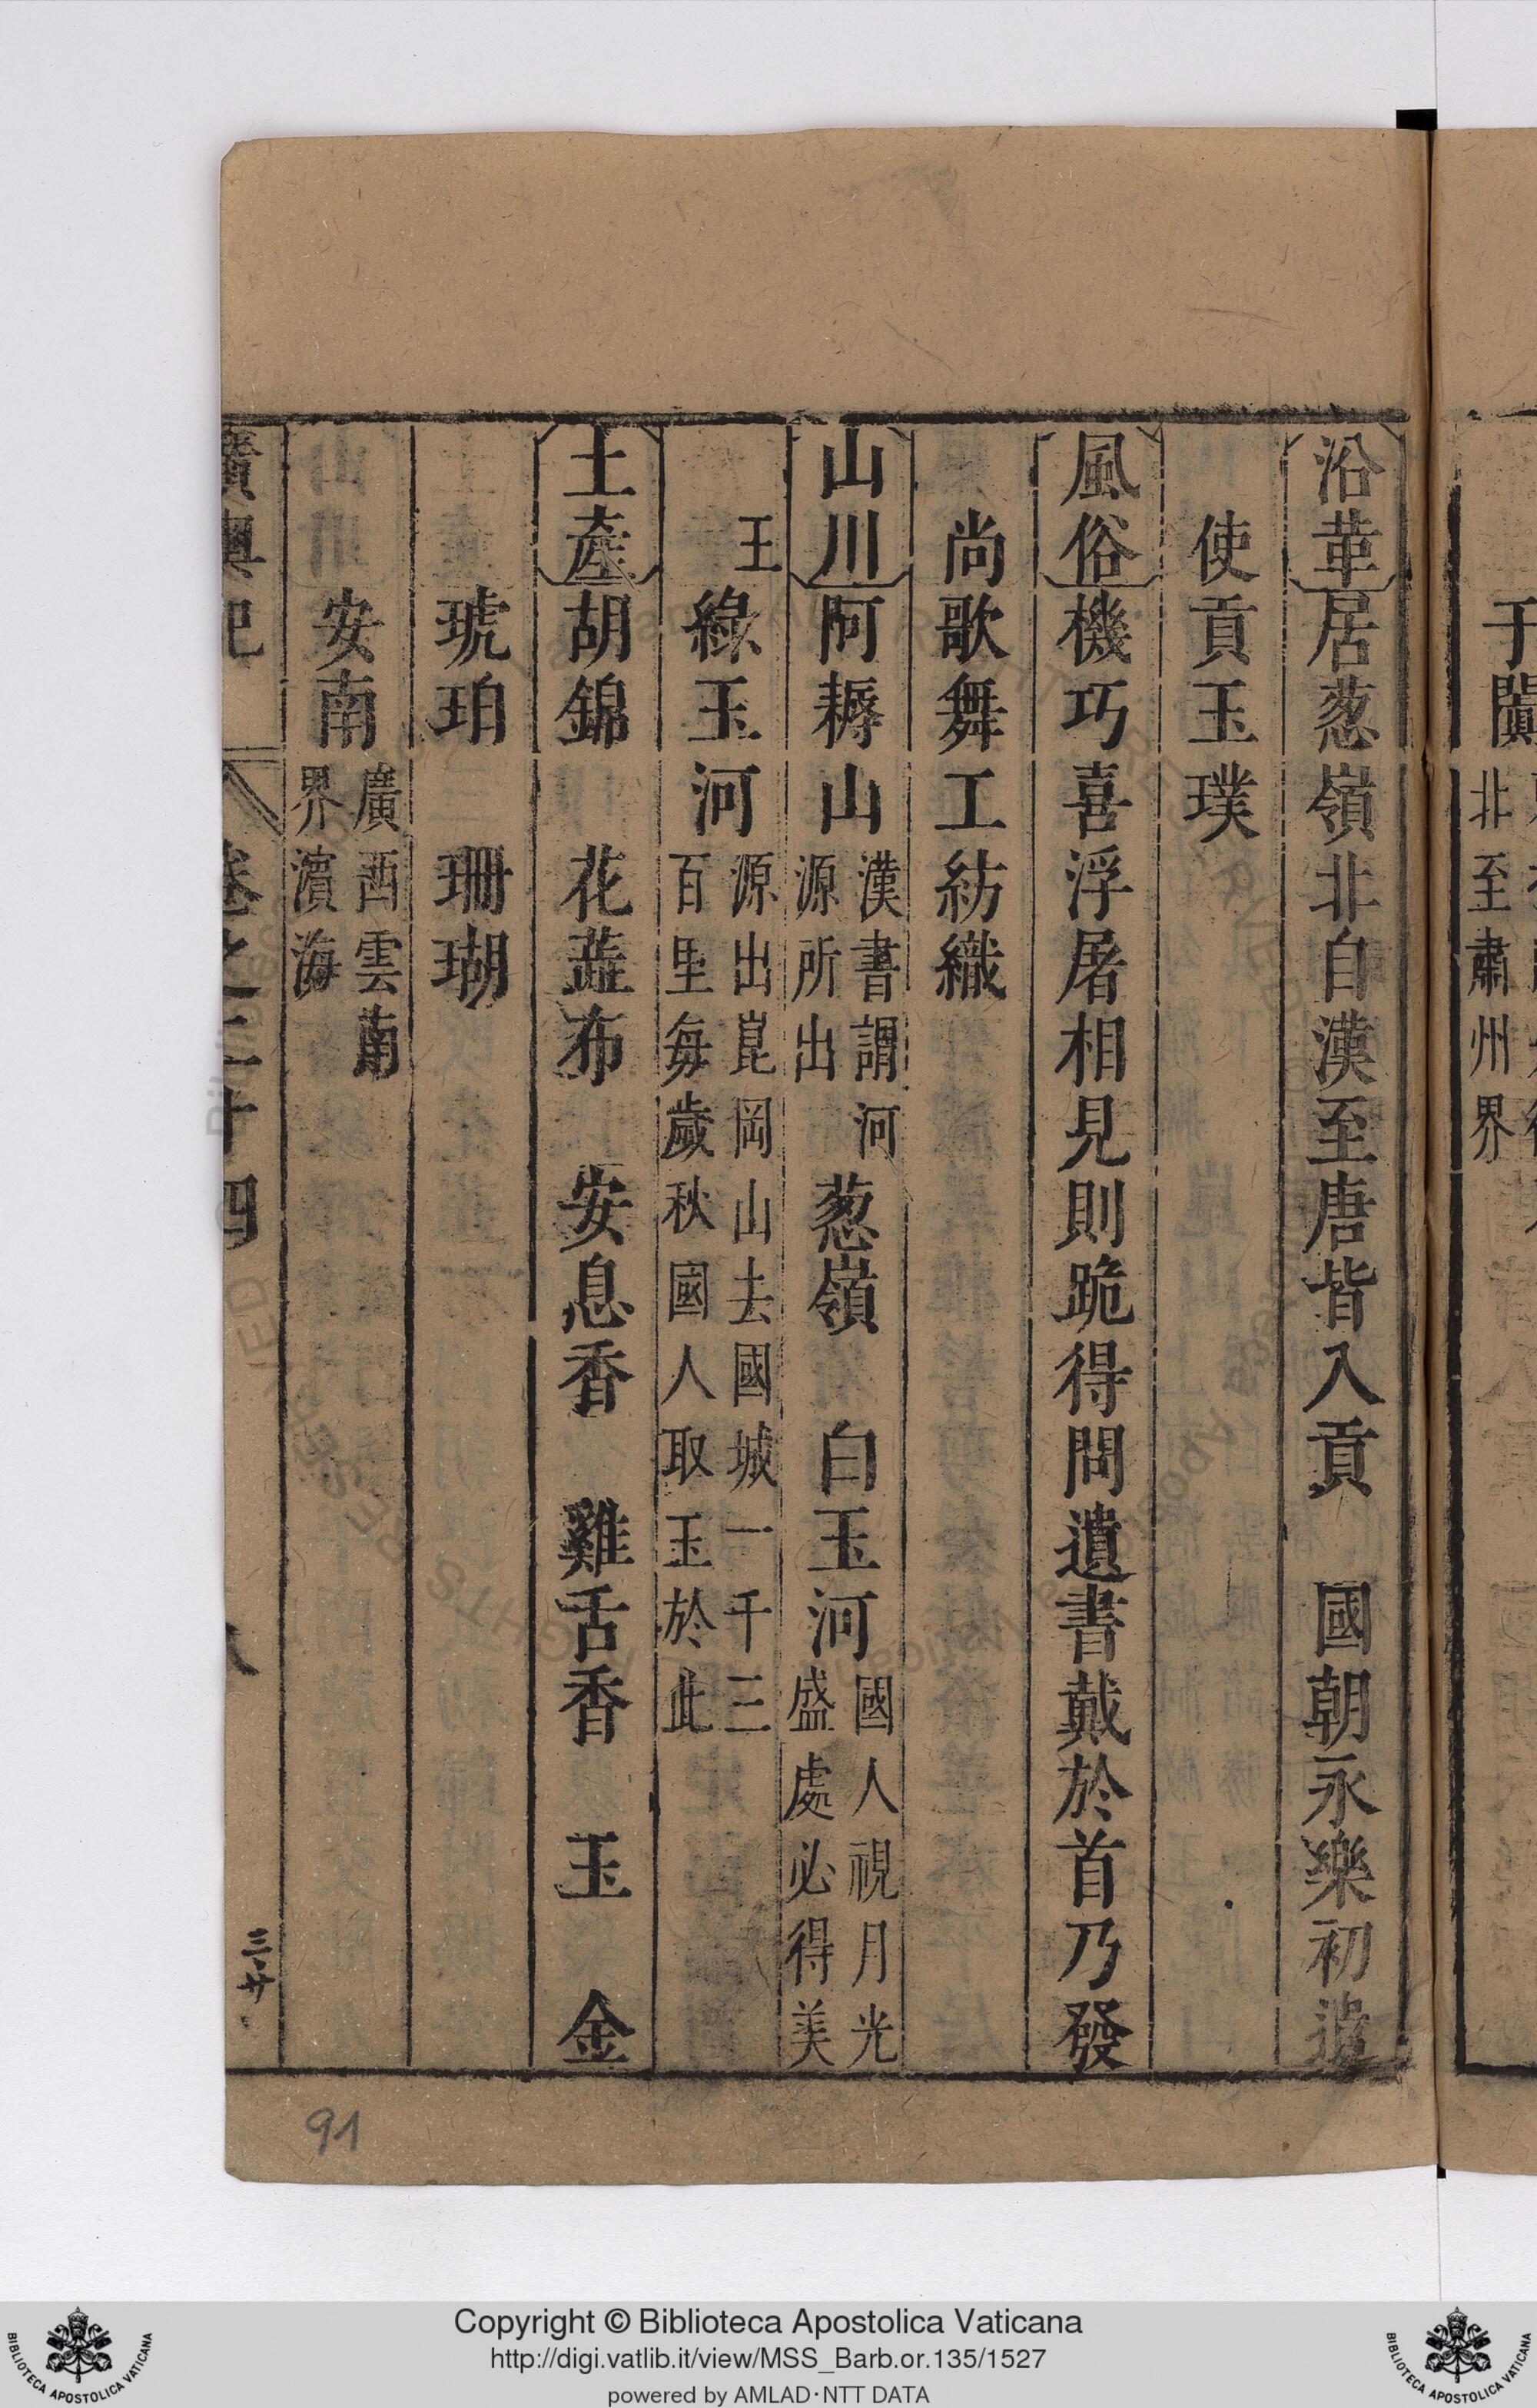 于闐
北至肅州界
沿革居葱嶺北自漢至唐皆入貢　國朝永樂初遣
使貢玉璞
風俗機巧喜浮屠相見則跪得問遺書戴於首乃發
尚歌舞工紡織
山川阿耨山漢書謂河源所出葱嶺　白玉河國人視月光盛處必得美
玉綠玉河源出崑岡山去國城一千三百里每歲秋國人取玉於此
土產胡錦　花蕋布　安息香　雞舌香　玉　金
琥珀　珊瑚
安南廣西雲南界濱海
廣輿記　卷之二十四
三廿
91
Copyright © Biblioteca Apostolica Vaticana
http://digi.vatlib.it/view/MSS_Barb.or.135/1527
powered by AMLAD·NTT DATA
BIBLIOTECA APOSTOLICA VATICANA
BIBLIOTECA APOSTOLICA VATICANA